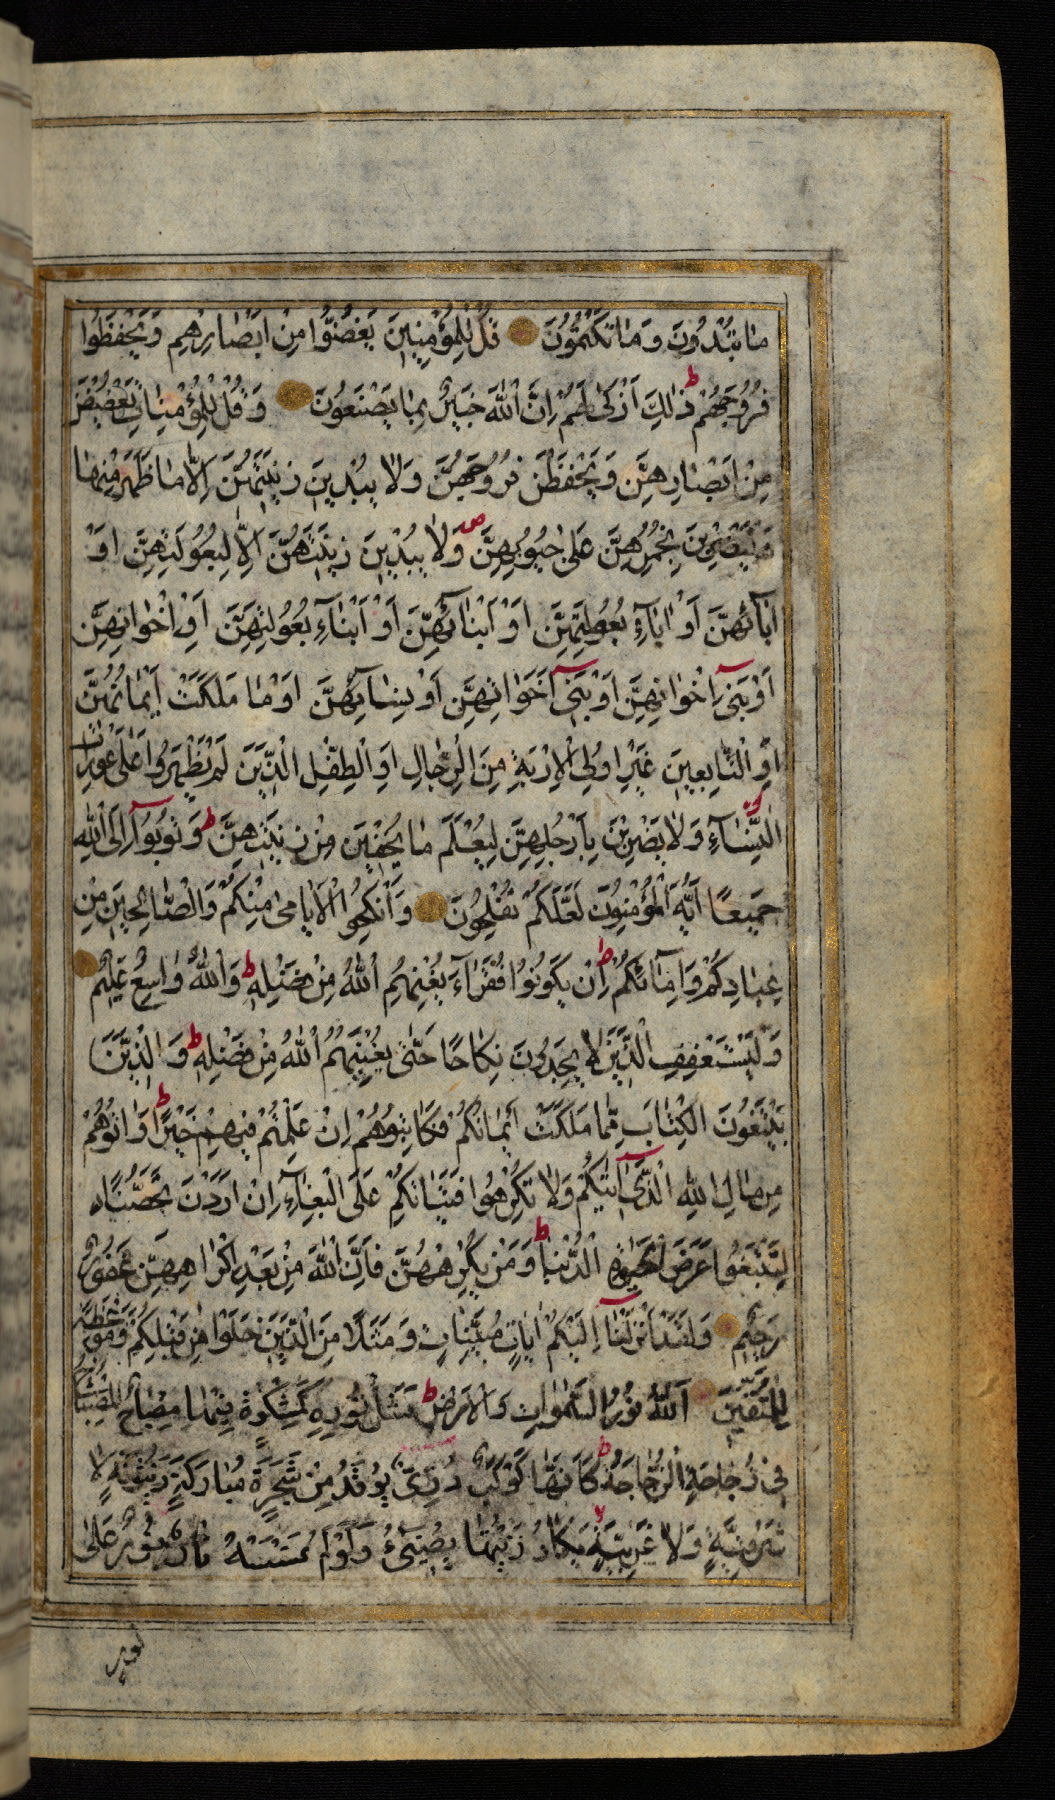 مَا تُبْدُونَ وَمَا تَكْتُمُونَ قُلْ لِلْمُؤْمِنِينَ يَغُضُّوا مِنْ اَبْصَارِهِمْ وَيَحْفَظُوا
فُرُوجَهُمْ ط ذٰلِكَ اَزْكٰى لَهُمْ اِنَّ اللّٰهَ خَبِيرٌ بِمَا يَصْنَعُونَ وَقُلْ لِلْمُؤْمِنَاتِ يَغْضُضْنَ
مِنْ اَبْصَارِهِنَّ وَيَحْفَظْنَ فُرُوجَهُنَّ وَلَا يُبْدِينَ زِينَتَهُنَّ اِلَّا مَا ظَهَرَ مِنْهَا
وَلْيَضْرِبْنَ بِخُمُرِهِنَّ عَلٰى جُيُوبِهِنَّ ص وَلَا يُبْدِينَ زِينَتَهُنَّ اِلَّا لِبُعُولَتِهِنَّ اَوْ
اٰبَآئِهِنَّ اَوْ اٰبَآءِ بُعُولَتِهِنَّ اَوْ اَبْنَآئِهِنَّ اَوْ اَبْنَآءِ بُعُولَتِهِنَّ اَوْ اِخْوَانِهِنَّ
اَوْ بَنِىٓ اِخْوَانِهِنَّ اَوْ بَنِىٓ اَخَوَاتِهِنَّ اَوْ نِسَآئِهِنَّ اَوْ مَا مَلَكَتْ اَيْمَانُهُنَّ
اَوِ التَّابِعِينَ غَيْرِ اُولِى الْاِرْبَةِ مِنَ الرِّجَالِ اَوِ الطِّفْلِ الَّذِينَ لَمْ يَظْهَرُوا عَلٰى عَوْرَاتِ
النِّسَآءِ وَلَا يَضْرِبْنَ بِاَرْجُلِهِنَّ لِيُعْلَمَ مَا يُخْفِينَ مِنْ زِينَتِهِنَّ ط وَتُوبُوٓا اِلَى اللّٰهِ
جَمِيعًا اَيُّهَ الْمُؤْمِنُونَ لَعَلَّكُمْ تُفْلِحُونَ وَاَنْكِحُوا الْاَيَامٰى مِنْكُمْ وَالصَّالِحِينَ مِنْ
عِبَادِكُمْ وَاِمَآئِكُمْ ط اِنْ يَكُونُوا فُقَرَآءَ يُغْنِهِمُ اللّٰهُ مِنْ فَضْلِهِ ط وَاللّٰهُ وَاسِعٌ عَلِيمٌ
وَلْيَسْتَعْفِفِ الَّذِينَ لَا يَجِدُونَ نِكَاحًا حَتّٰى يُغْنِيَهُمُ اللّٰهُ مِنْ فَضْلِهِ ط وَالَّذِينَ
يَبْتَغُونَ الْكِتَابَ مِمَّا مَلَكَتْ اَيْمَانُكُمْ فَكَاتِبُوهُمْ اِنْ عَلِمْتُمْ فِيهِمْ خَيْرًا ط وَاٰتُوهُمْ
مِنْ مَالِ اللّٰهِ الَّذِىٓ اٰتٰيكُمْ وَلَا تُكْرِهُوا فَتَيَاتِكُمْ عَلَى الْبِغَآءِ اِنْ اَرَدْنَ تَحَصُّنًا
لِتَبْتَغُوا عَرَضَ الْحَيٰوةِ الدُّنْيَا ط وَمَنْ يُكْرِهْهُنَّ فَاِنَّ اللّٰهَ مِنْ بَعْدِ اِكْرَاهِهِنَّ غَفُورٌ
رَحِيمٌ وَلَقَدْ اَنْزَلْنَآ اِلَيْكُمْ اٰيَاتٍ مُبَيِّنَاتٍ وَمَثَلًا مِنَ الَّذِينَ خَلَوْا مِنْ قَبْلِكُمْ وَمَوْعِظَةً
لِلْمُتَّقِينَ اَللّٰهُ نُورُ السَّمٰوَاتِ وَالْاَرْضِ ط مَثَلُ نُورِهِ كَمِشْكٰوةٍ فِيهَا مِصْبَاحٌ الْمِصْبَاحُ
فِى زُجَاجَةٍ الزُّجَاجَةُ ط كَاَنَّهَا كَوْكَبٌ دُرِّىٌّ يُوقَدُ مِنْ شَجَرَةٍ مُبَارَكَةٍ زَيْتُونَةٍ لَا
شَرْقِيَّةٍ وَلَا غَرْبِيَّةٍ لا يَكَادُ زَيْتُهَا يُضِىٓءُ وَلَوْ لَمْ تَمْسَسْهُ نَارٌ نُورٌ عَلٰى
نور